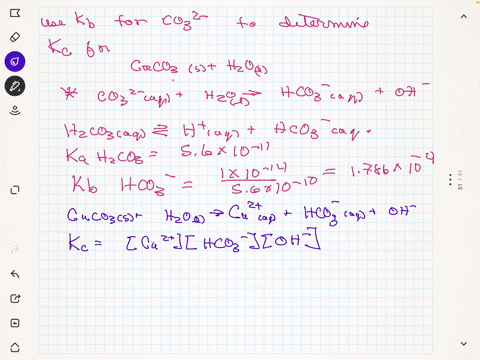 use Kb for CO₃²⁻ to determine
Kc for
CaCO₃ (s) + H₂O(l)
* CO₃²⁻(aq) + H₂O(l) → HCO₃⁻(aq) + OH⁻
H₂CO₃(aq) ⇌ H⁺(aq) + HCO₃⁻ aq.
Ka H₂CO₃ = 5.6 × 10⁻¹¹
Kb HCO₃⁻ = 1 × 10⁻¹⁴ / 5.6 × 10⁻¹⁰ = 1.786 × 10⁻⁴
CaCO₃(s) + H₂O(l) → Ca²⁺(aq) + HCO₃⁻(aq) + OH⁻
Kc = [Ca²⁺][HCO₃⁻][OH⁻]